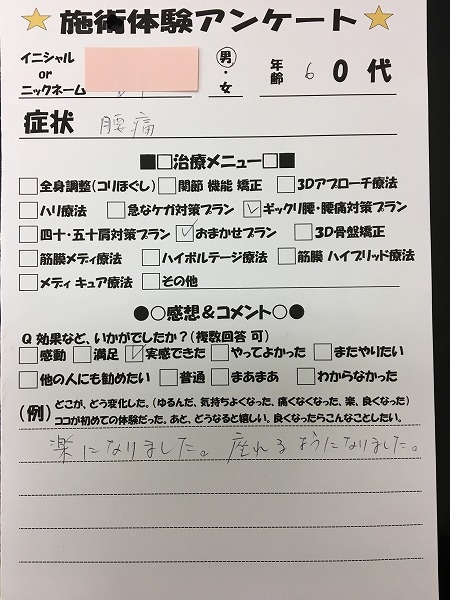 施術体験アンケート
イニシャル or ニックネーム 男・女 年齢 60代
症状 腰痛
■□治療メニュー□■
全身調整(コリほぐし) 関節 機能 矯正 3Dアプローチ療法
ハリ療法 急なケガ対策プラン ギックリ腰・腰痛対策プラン
四十・五十肩対策プラン おまかせプラン 3D骨盤矯正
筋膜メディ療法 ハイボルテージ療法 筋膜 ハイブリッド療法
メディ キュア療法 その他
●○感想&コメント○●
Q 効果など、いかがでしたか?(複数回答 可)
感動 満足 実感できた やってよかった またやりたい
他の人にも勧めたい 普通 まあまあ わからなかった
(例) どこが、どう変化した。(ゆるんだ、気持ちよくなった、痛くなくなった、楽、良くなった)
ココが初めての体験だった。あと、どうなると嬉しい。良くなったらこんなことしたい。
楽になりました。座れるようになりました。